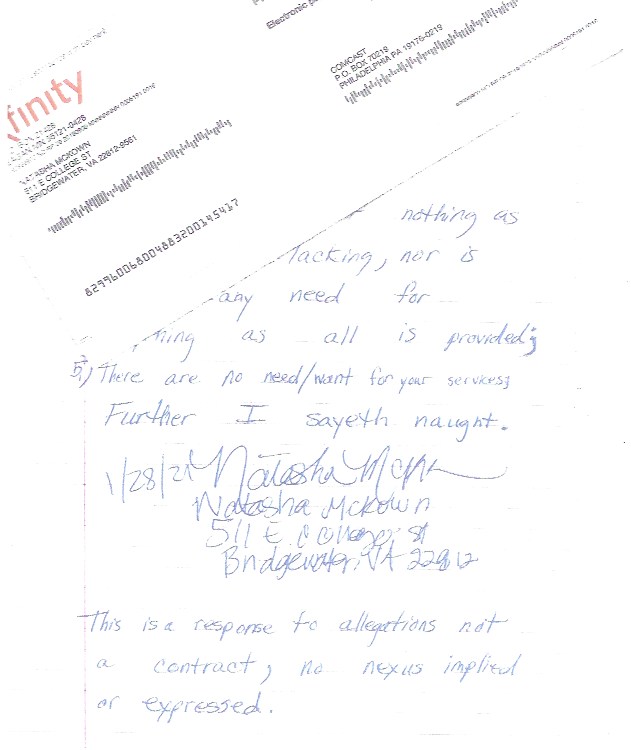 Electronic
COMCAST
P.O. BOX 70219
PHILADELPHIA PA 19176-0219
finity
NATASHA MCKOWN
511 E COLLEGE ST
BRIDGEWATER, VA 22812-9561
8299600680048832001454 17
nothing as
lacking, nor is
any need for
as all is provided;
5.) There are no need/want for your services;
Further I sayeth naught.
1/28/21 Natasha
Natasha McKown
511 E. College St
Bridgewater, VA 22812
This is a response to allegations not
a contract; no nexus implied
or expressed.